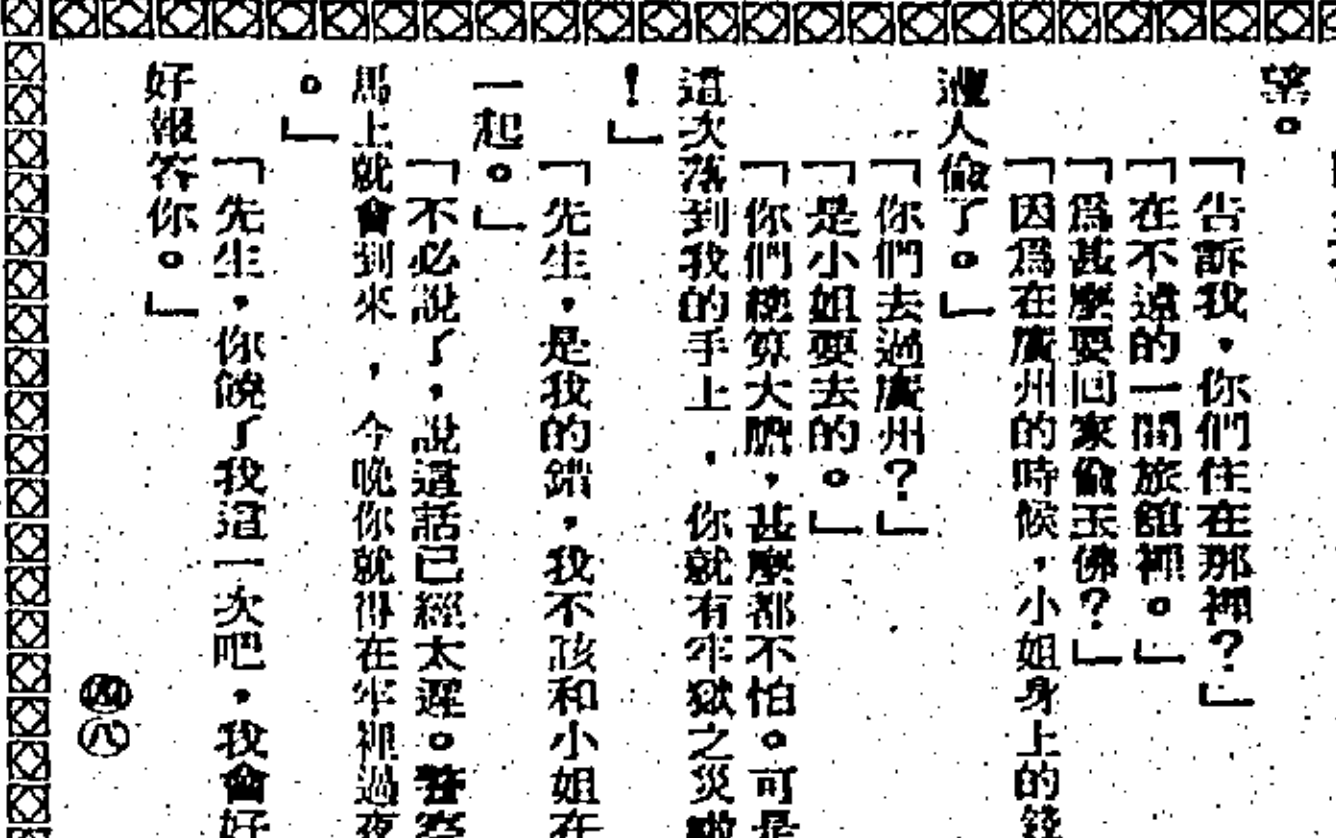 望。
「告訴我,你們住在那裡?」
「在不遠的一間旅館裡。」
「爲甚麼要回家偷玉佛?」
「因爲在廣州的時候,小姐身上的錢
人偷了。」
「你們去過廣州?」
「是小姐要去的。」
「你們總算大膽,甚麼都不怕。可是
這次落到我的手上,你就有牢獄之災啦
!」
「先生,是我的錯,我不該和小姐在
一起。」
「不必說了,說這話已經太遲。警察
馬上就會到來,今晚你就得在牢裡過夜
。」
「先生,你饒了我這一次吧,我會好
好報答你。」
四八